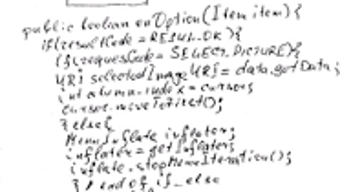 public boolean onOption(Item item){
if(resultCode = RESUL_OK){
if(requesCode = SELECT_PICTURE){
URI selectedImageURI = data.getData;
int column_index = cursor;
cursor.moveToFirst();
}else{
MenuInflate inflater;
inflater = getInflaters;
inflate.stopMenuIteration();
} // end of if_else